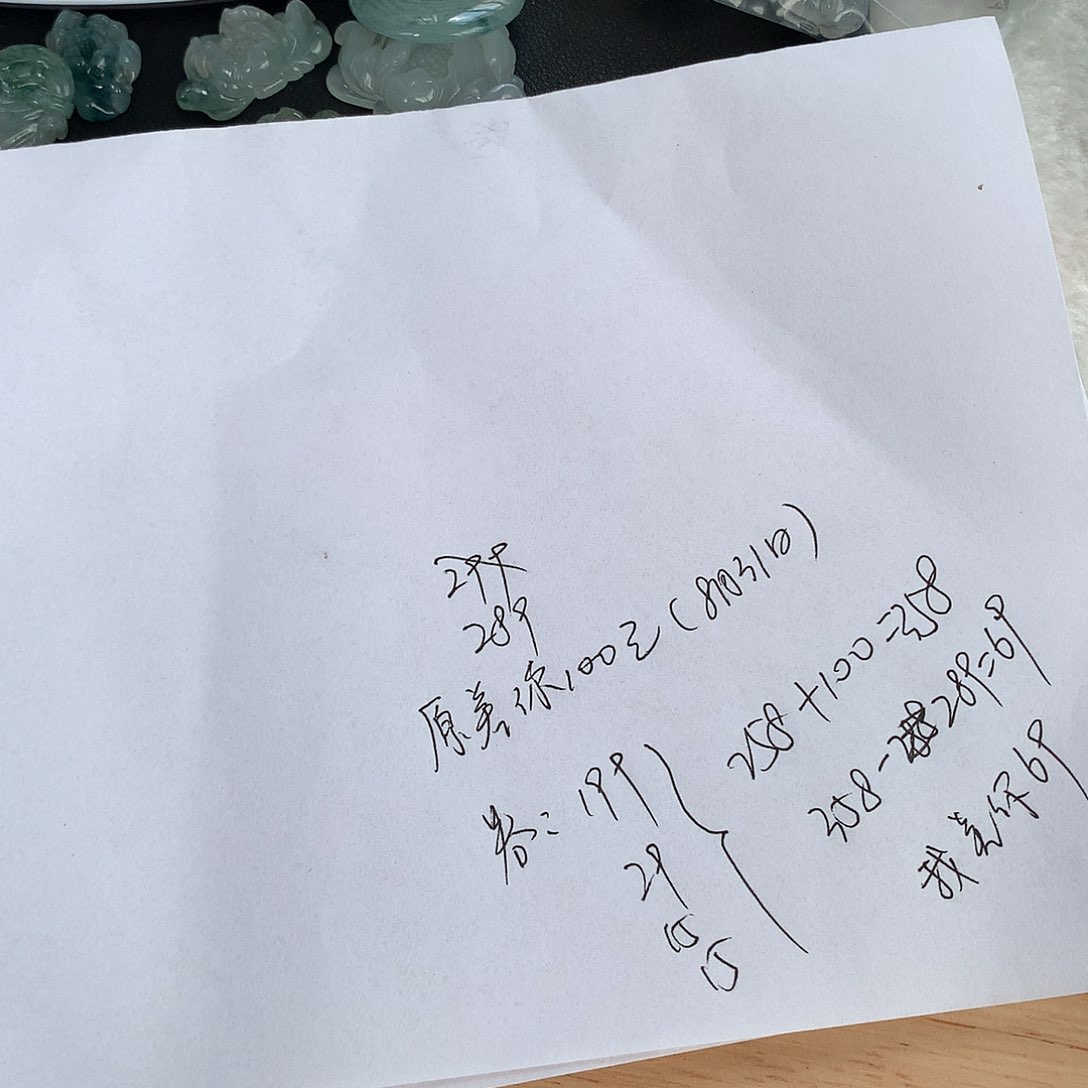 299
289
原差你100元(8月31日)
199
29
15
15
258+100=358
358-289=69
我差你69